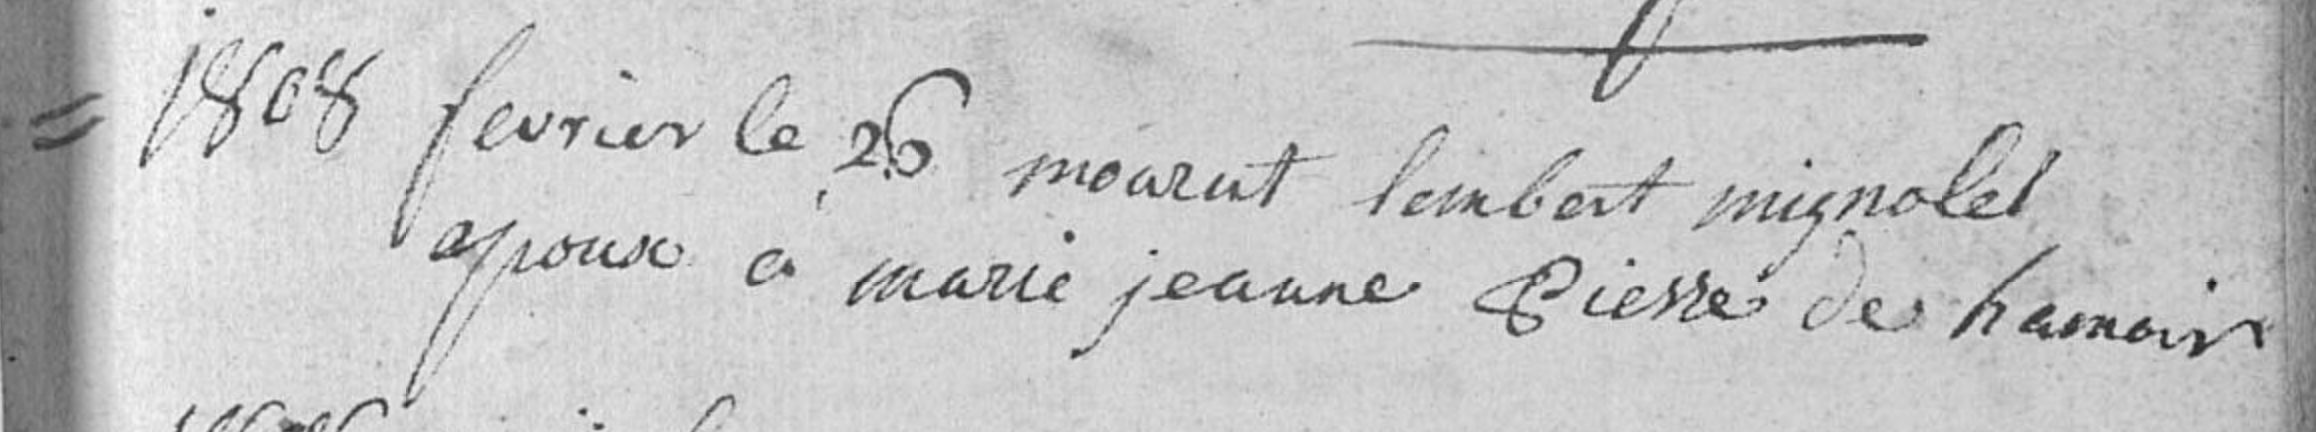 = 1808 fevrier le 26 mourut lambert mignolet
epoux a marie jeanne Pierre de hamoir